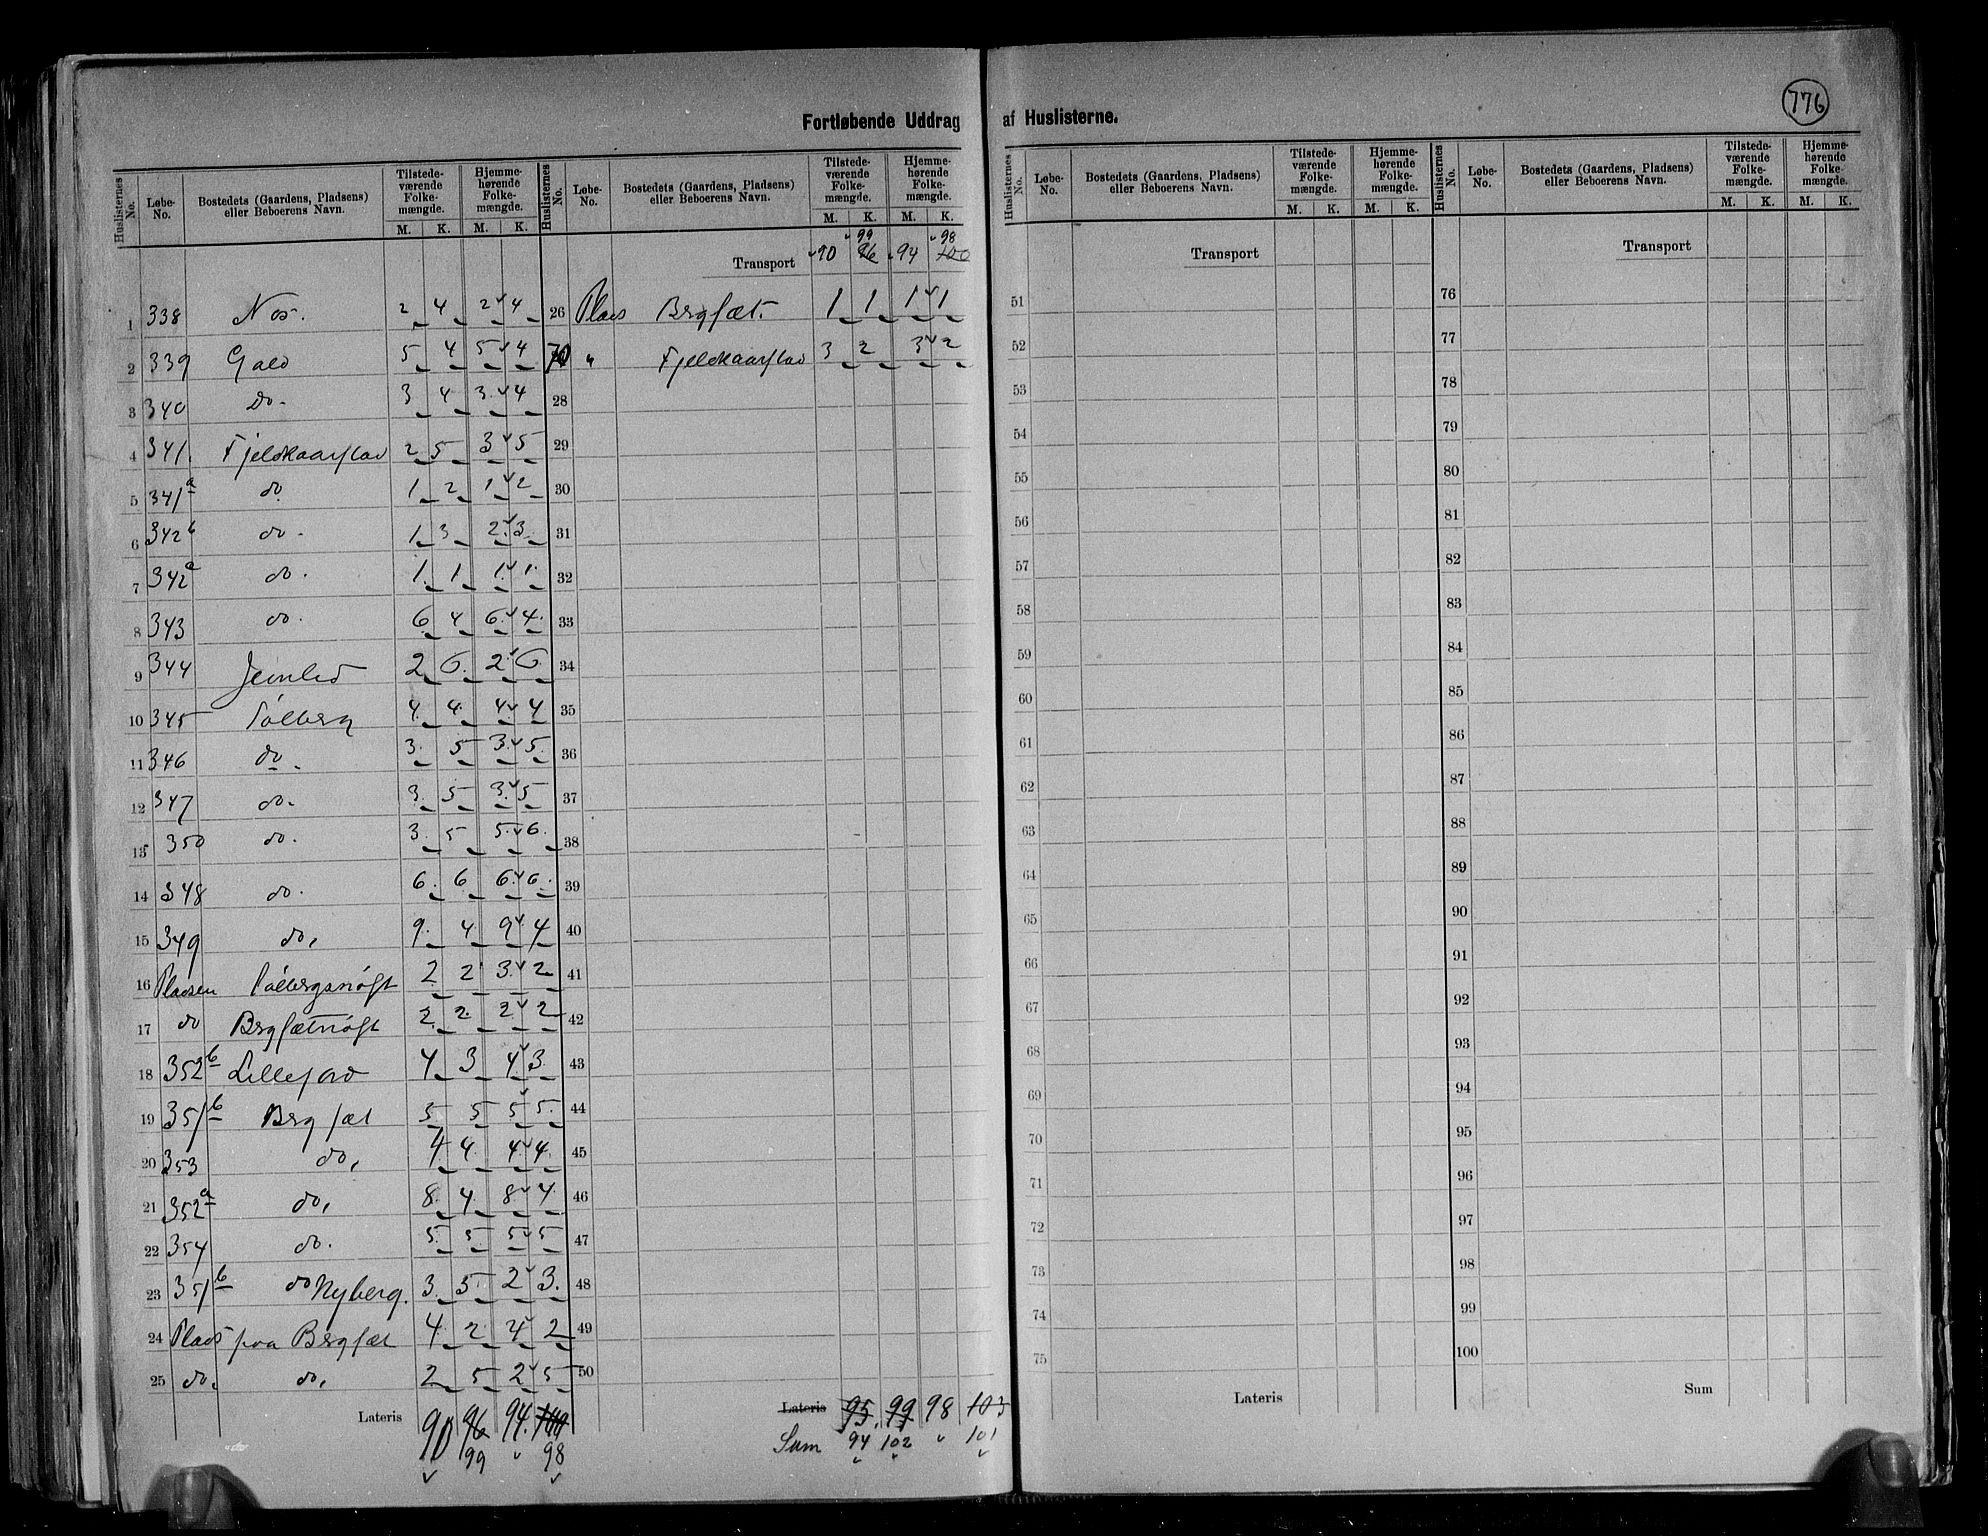 776
Fortløbende Uddrag af Huslisterne.
Huslisternes No. Løbe-No. Bostedets (Gaardens, Pladsens) eller Beboerens Navn. Tilstede-værende Folke-mængde. M. K. Hjemme-hørende Folke-mængde. M. K.
Huslisternes No. Løbe-No. Bostedets (Gaardens, Pladsens) eller Beboerens Navn. Tilstede-værende Folke-mængde. M. K. Hjemme-hørende Folke-mængde. M. K.
1 338 Nos. 2 4 2 4
2 339 Gald 5 4 5 4
3 340 Do. 3 4 3 4
4 341. Fjeldkaarstad 2 5 3 5
5 341a do 1 2 1 2
6 342b do. 1 3 2 3
7 342a do. 1 1 1 1
8 343 do. 6 4 6 4
9 344 2 6 2 6
10 345 Sølberg 4 4 4 4
11 346 do. 3 5 3 5
12 347 do. 3 5 3 5
13 350 do. 3 5 5 6
14 348 do. 6 6 6 6
15 349 do, 9 4 9 4
16 Pladsen 2 2 3 2
17 do 2 2 2 2
18 352b Lillejord 4 3 4 3
19 351b Bergsæt 5 5 5 5
20 353 do, 4 4 4 4
21 352a do, 8 4 8 4
22 354 do. 5 5 5 5
23 351b do Nyberg. 3 5 2 3
24 Plads paa Bergsæt 4 2 4 2
25 do. do, 2 5 2 5
Lateris 90 96 94. 100
99 98
99 98
Transport 90 96 94 100
26 Plads Bergsæt. 1 1 1 1
" Fjeldkaarstad 3 2 3 2
28
29
30
31
32
33
34
35
36
37
38
39
40
41
42
43
44
45
46
47
48
49
50
Lateris 95. 99 98 103
Sum 94 102 101
Huslisternes No. Løbe-No. Bostedets (Gaardens, Pladsens) eller Beboerens Navn. Tilstede-værende Folke-mængde. M. K. Hjemme-hørende Folke-mængde. M. K.
Transport
51
52
53
54
55
56
57
58
59
60
61
62
63
64
65
66
67
68
69
70
71
72
73
74
75
Lateris
Huslisternes No. Løbe-No. Bostedets (Gaardens, Pladsens) eller Beboerens Navn. Tilstede-værende Folke-mængde. M. K. Hjemme-hørende Folke-mængde. M. K.
Transport
76
77
78
79
80
81
82
83
84
85
86
87
88
89
90
91
92
93
94
95
96
97
98
99
100
Sum